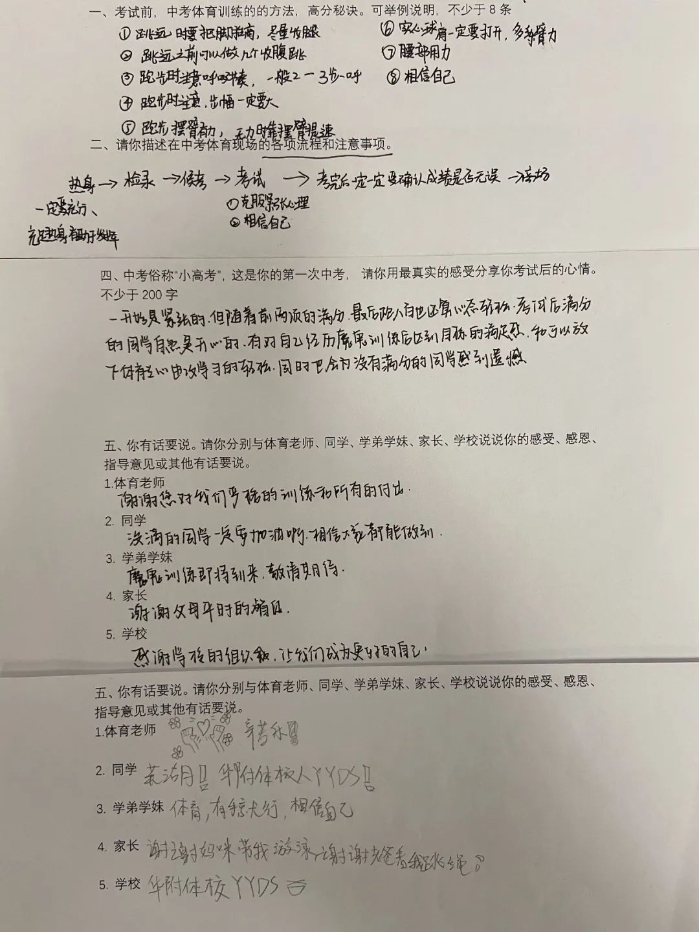 一、考试前，中考体育训练的的方法，高分秘诀。可举例说明，不少于 8 条
① 跳远时要把脚抬高，尽量收腿
② 跳远之前可以做几个收腹跳
③ 跑步时注意呼吸节奏，一般2一3步一呼
④ 跑步时注意，步幅一定要大
⑤ 跑步摆臂有力，无力时靠摆臂提速
⑥ 实心球肩一定要打开，多练臂力
⑦ 腰部用力
⑧ 相信自己
二、请你描述在中考体育现场的各项流程和注意事项。
热身→检录→候考→考试→考完后一定一定要确认成绩是否无误→离场
一定要充分、
充足热身有助于发挥
①克服紧张心理
②相信自己
四、中考俗称“小高考”，这是你的第一次中考， 请你用最真实的感受分享你考试后的心情。
不少于 200 字
一开始是紧张的，但随着前两项的满分，最后 也还算心态轻松，考试后满分
的同学自然是开心的，有对自己经历魔鬼训练后达到目标的满足感，和可以放
下体育 学习的轻松，同时也会为没有满分的同学感到遗憾
五、你有话要说。请你分别与体育老师、同学、学弟学妹、家长、学校说说你的感受、感恩、
指导意见或其他有话要说。
1.体育老师
谢谢您对我们严格的训练和所有的付出．
2. 同学
没满的同学一定要加油啊，相信大家都能做到．
3. 学弟学妹
魔鬼训练即将到来，敬请期待．
4. 家长
谢谢父母平时的陪伴．
5. 学校
感谢学校的组织，让我们成为更好的自己．
五、你有话要说。请你分别与体育老师、同学、学弟学妹、家长、学校说说你的感受、感恩、
指导意见或其他有话要说。
1.体育老师 辛苦了!!
2. 同学 华附体校人YYDS!!
3. 学弟学妹 体育，有手就行，相信自己
4. 家长 谢谢妈咪带我游泳，谢谢老爸
5. 学校 华附体校YYDS